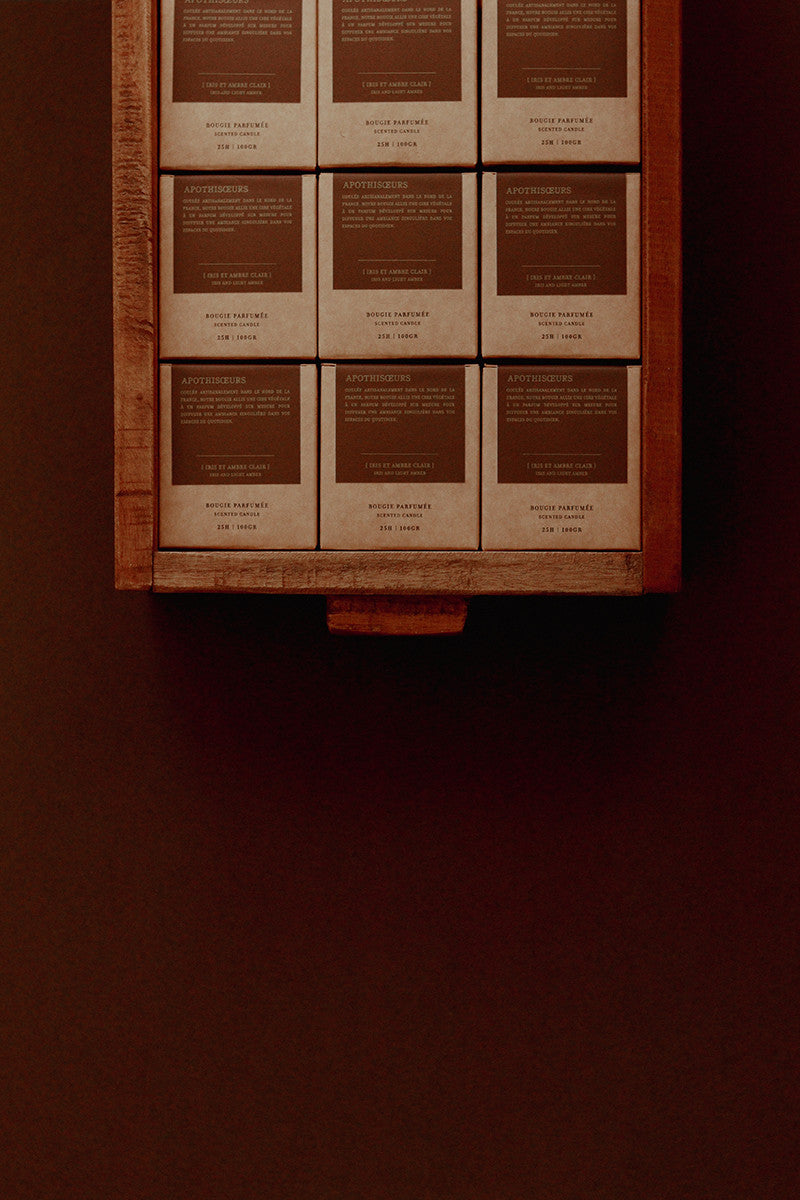 FRANCE, NOTRE BOUGIE ALLIE UNE CIRE VÉGÉTALE
À UN PARFUM DÉVELOPPÉ SUR MESURE POUR
DIFFUSER UNE AMBIANCE SINGULIÈRE DANS VOS
ESPACES DU QUOTIDIEN.
[ IRIS ET AMBRE CLAIR ]
IRIS AND LIGHT AMBER
BOUGIE PARFUMÉE
SCENTED CANDLE
25H | 100GR
FRANCE, NOTRE BOUGIE ALLIE UNE CIRE VÉGÉTALE
À UN PARFUM DÉVELOPPÉ SUR MESURE POUR
DIFFUSER UNE AMBIANCE SINGULIÈRE DANS VOS
ESPACES DU QUOTIDIEN.
[ IRIS ET AMBRE CLAIR ]
IRIS AND LIGHT AMBER
BOUGIE PARFUMÉE
SCENTED CANDLE
25H | 100GR
FRANCE, NOTRE BOUGIE ALLIE UNE CIRE VÉGÉTALE
À UN PARFUM DÉVELOPPÉ SUR MESURE POUR
DIFFUSER UNE AMBIANCE SINGULIÈRE DANS VOS
ESPACES DU QUOTIDIEN.
[ IRIS ET AMBRE CLAIR ]
IRIS AND LIGHT AMBER
BOUGIE PARFUMÉE
SCENTED CANDLE
25H | 100GR
APOTHISŒURS
COULÉE ARTISANALEMENT DANS LE NORD DE LA
FRANCE, NOTRE BOUGIE ALLIE UNE CIRE VÉGÉTALE
À UN PARFUM DÉVELOPPÉ SUR MESURE POUR
DIFFUSER UNE AMBIANCE SINGULIÈRE DANS VOS
ESPACES DU QUOTIDIEN.
[ IRIS ET AMBRE CLAIR ]
IRIS AND LIGHT AMBER
BOUGIE PARFUMÉE
SCENTED CANDLE
25H | 100GR
APOTHISŒURS
COULÉE ARTISANALEMENT DANS LE NORD DE LA
FRANCE, NOTRE BOUGIE ALLIE UNE CIRE VÉGÉTALE
À UN PARFUM DÉVELOPPÉ SUR MESURE POUR
DIFFUSER UNE AMBIANCE SINGULIÈRE DANS VOS
ESPACES DU QUOTIDIEN.
[ IRIS ET AMBRE CLAIR ]
IRIS AND LIGHT AMBER
BOUGIE PARFUMÉE
SCENTED CANDLE
25H | 100GR
APOTHISŒURS
COULÉE ARTISANALEMENT DANS LE NORD DE LA
FRANCE, NOTRE BOUGIE ALLIE UNE CIRE VÉGÉTALE
À UN PARFUM DÉVELOPPÉ SUR MESURE POUR
DIFFUSER UNE AMBIANCE SINGULIÈRE DANS VOS
ESPACES DU QUOTIDIEN.
[ IRIS ET AMBRE CLAIR ]
IRIS AND LIGHT AMBER
BOUGIE PARFUMÉE
SCENTED CANDLE
25H | 100GR
APOTHISŒURS
COULÉE ARTISANALEMENT DANS LE NORD DE LA
FRANCE, NOTRE BOUGIE ALLIE UNE CIRE VÉGÉTALE
À UN PARFUM DÉVELOPPÉ SUR MESURE POUR
DIFFUSER UNE AMBIANCE SINGULIÈRE DANS VOS
ESPACES DU QUOTIDIEN.
[ IRIS ET AMBRE CLAIR ]
IRIS AND LIGHT AMBER
BOUGIE PARFUMÉE
SCENTED CANDLE
25H | 100GR
APOTHISŒURS
COULÉE ARTISANALEMENT DANS LE NORD DE LA
FRANCE, NOTRE BOUGIE ALLIE UNE CIRE VÉGÉTALE
À UN PARFUM DÉVELOPPÉ SUR MESURE POUR
DIFFUSER UNE AMBIANCE SINGULIÈRE DANS VOS
ESPACES DU QUOTIDIEN.
[ IRIS ET AMBRE CLAIR ]
IRIS AND LIGHT AMBER
BOUGIE PARFUMÉE
SCENTED CANDLE
25H | 100GR
APOTHISŒURS
COULÉE ARTISANALEMENT DANS LE NORD DE LA
FRANCE, NOTRE BOUGIE ALLIE UNE CIRE VÉGÉTALE
À UN PARFUM DÉVELOPPÉ SUR MESURE POUR
DIFFUSER UNE AMBIANCE SINGULIÈRE DANS VOS
ESPACES DU QUOTIDIEN.
[ IRIS ET AMBRE CLAIR ]
IRIS AND LIGHT AMBER
BOUGIE PARFUMÉE
SCENTED CANDLE
25H | 100GR